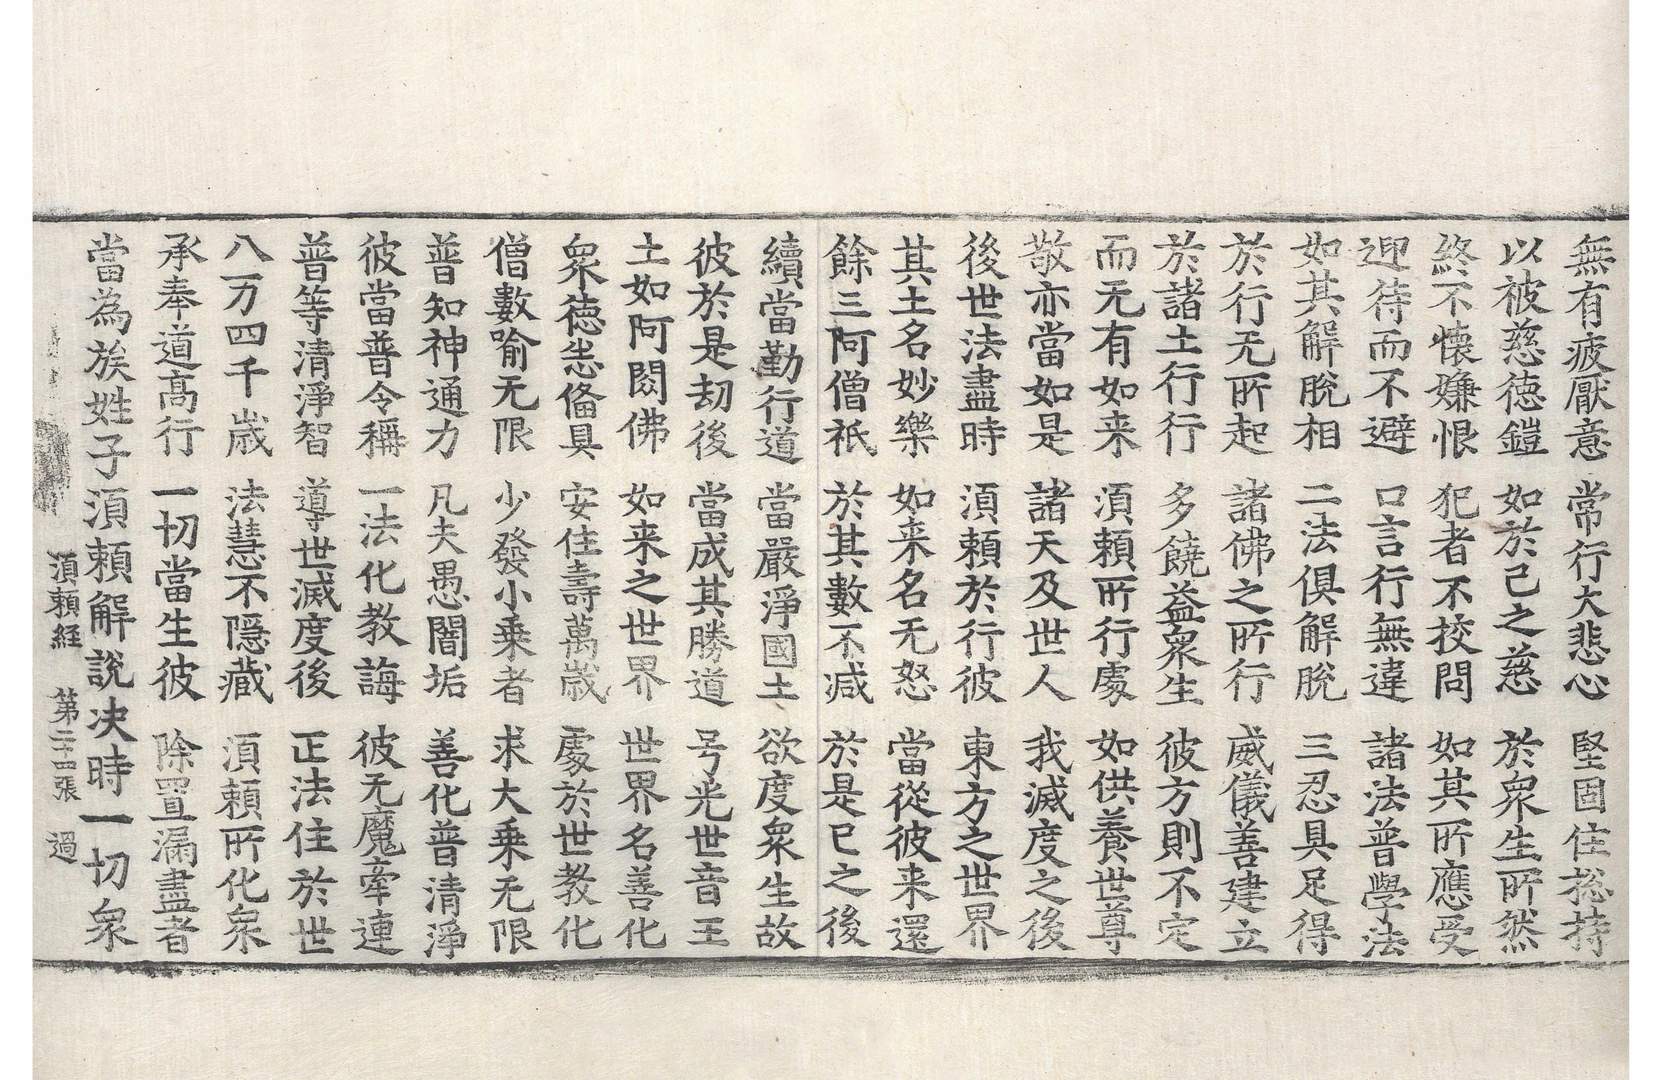 無有疲厭意　常行大悲心　堅固住捴持
以被慈徳鎧　如於己之慈　於衆生所然
終不懐嫌恨　犯者不挍問　如其所應受
迎待而不避　口言行無違　諸法普學法
如其解脫相　二法俱解脫　三忍具足得
於行无所起　諸佛之所行　威儀善建立
於諸土行行　多饒益衆生　彼方則不定
而无有如来　湏頼所行處　如供養世尊
敬亦當如是　諸天及世人　我滅度之後
後世法盡時　湏頼於行彼　東方之世界
其土名妙樂　如来名无怒　當從彼来還
餘三阿僧祇　於其數不减　於是已之後
續當勤行道　當嚴淨國土　欲度衆生故
彼於是劫後　當成其勝道　号光世音王
土如阿閦佛　如来之世界　世界名善化
衆徳悉俻具　安住壽萬歳　處於世教化
僧數喻无限　少發小乗者　求大乗无限
普知神通力　凡夫愚闇垢　善化普清淨
彼當普令稱　一法化教誨　彼无魔牽連
普等清淨智　導世滅度後　正法住於世
八万四千歳　法慧不隱藏　湏頼所化衆
承奉道高行　一切當生彼　除置漏盡者
當為族姓子湏頼解說决時一切衆
湏頼經　第二十四張　過